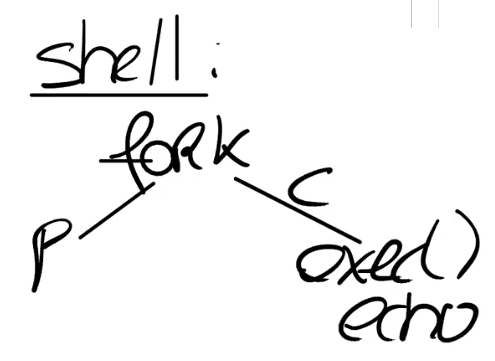 shell:
fork
C
P
exec()
echo